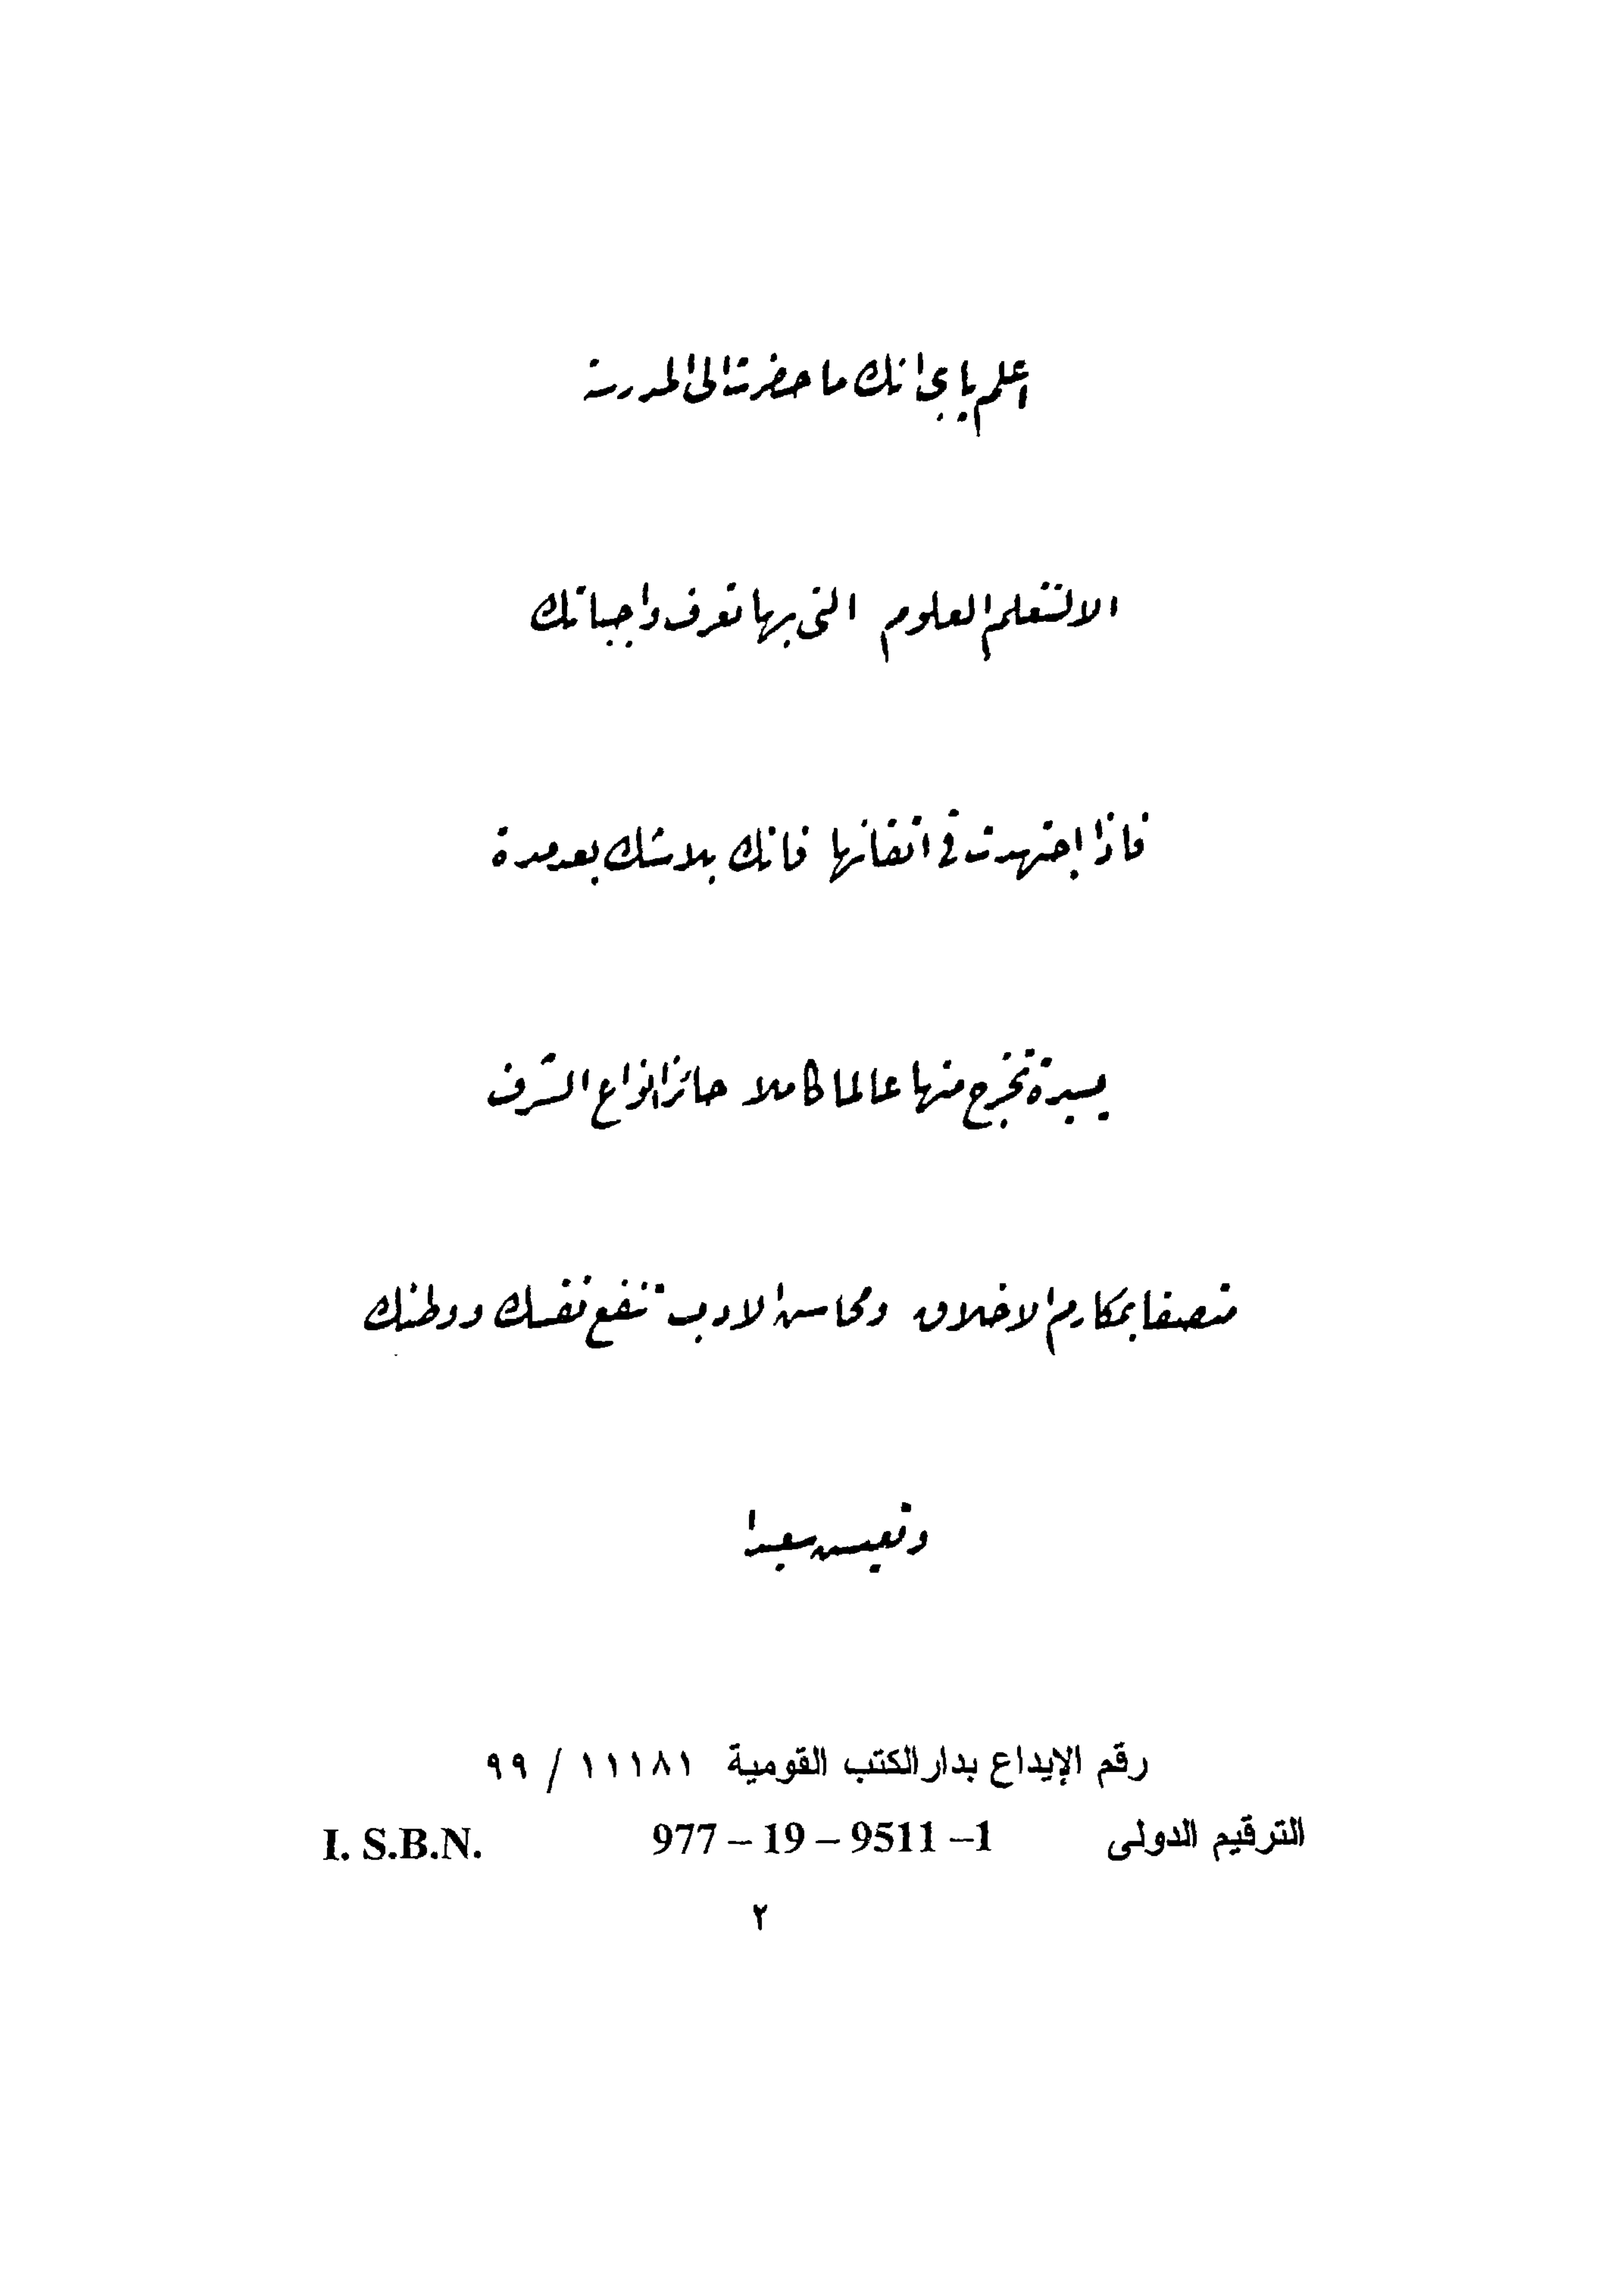 اعلم يا بنى انك ما حضرت الى المدرسة
الا لتتعلم العلوم التى بها تعرف واجباتك
فاذا إجتهدت فى اتقانها فانك بلا شك بعد مدة
يسيرة تخرج منها عالما كاملا حائزا انواع الشرف
متصفا بمكارم الاخلاق ومحاسن الادب تنفع نفسك ووطنك
وتعيش سعيدا
رقم الإيداع بدار الكتب القومية ١١١٨١ / ٩٩
الترقيم الدولى 977 – 19 – 9511 –1 I. S.B.N.
٢